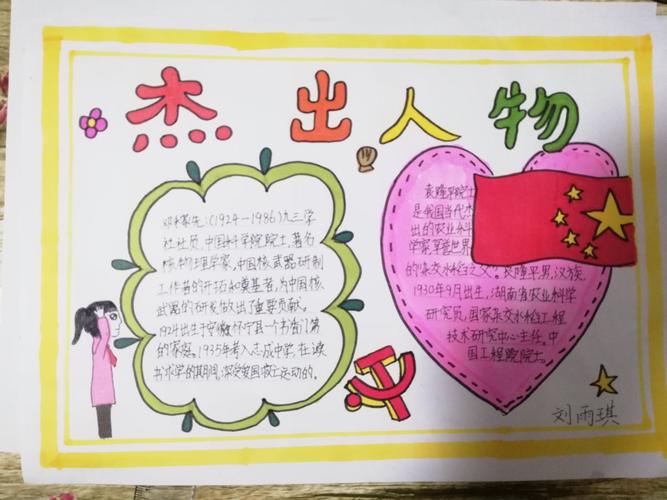 杰出人物
邓稼先:(1924－1986)九三学
社社员,中国科学院院士,著名
核物理学家,中国核武器研制
工作著的开拓和奠基者,为中国核
武器的研发做出了重要贡献。
1924出生于安徽怀宁县一个书香门第
的家庭。1935年考入志成中学,在读
书求学的其期间,深受爱国救亡运动的。
袁隆平院士
是我国当代杰
出的农业科
学家,享誉世界
的“杂交水稻之父”。袁隆平,男,汉族,
1930年9月出生,湖南省农业科学
研究员,国家杂交水稻工程
技术研究中心主任,中
国工程院院士。
刘雨琪